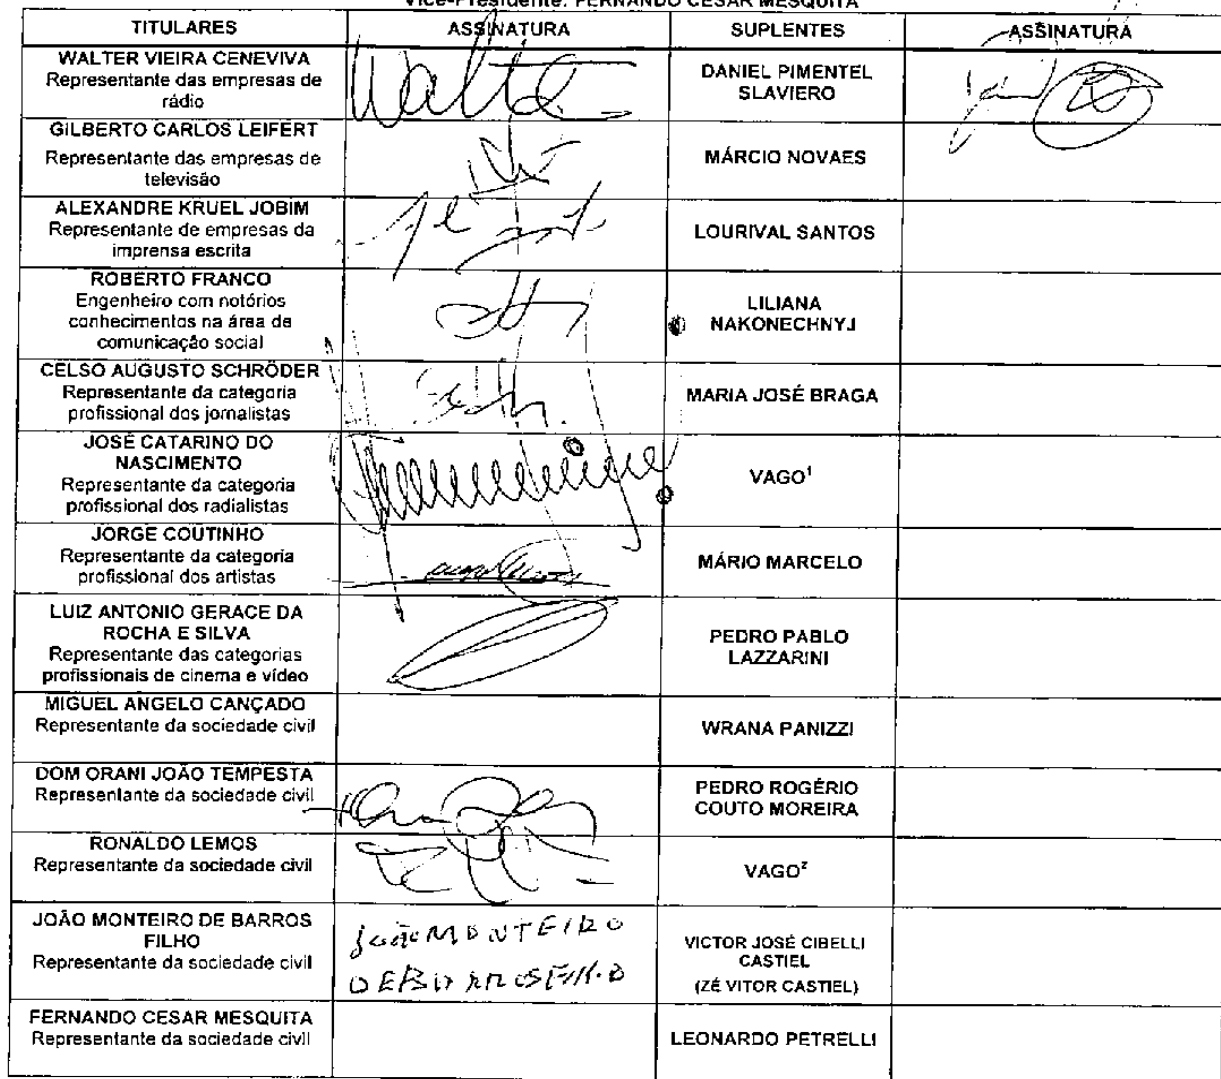 Vice-Presidente: FERNANDO CESAR MESQUITA
TITULARES ASSINATURA SUPLENTES ASSINATURA
WALTER VIEIRA CENEVIVA
Representante das empresas de
rádio
Walter
DANIEL PIMENTEL
SLAVIERO
GILBERTO CARLOS LEIFERT
Representante das empresas de
televisão
MÁRCIO NOVAES
ALEXANDRE KRUEL JOBIM
Representante de empresas da
imprensa escrita
LOURIVAL SANTOS
ROBERTO FRANCO
Engenheiro com notórios
conhecimentos na área de
comunicação social
LILIANA
NAKONECHNYJ
CELSO AUGUSTO SCHRÖDER
Representante da categoria
profissional dos jornalistas
MARIA JOSÉ BRAGA
JOSÉ CATARINO DO
NASCIMENTO
Representante da categoria
profissional dos radialistas
VAGO¹
JORGE COUTINHO
Representante da categoria
profissional dos artistas
MÁRIO MARCELO
LUIZ ANTONIO GERACE DA
ROCHA E SILVA
Representante das categorias
profissionais de cinema e vídeo
PEDRO PABLO
LAZZARINI
MIGUEL ANGELO CANÇADO
Representante da sociedade civil
WRANA PANIZZI
DOM ORANI JOÃO TEMPESTA
Representante da sociedade civil
PEDRO ROGÉRIO
COUTO MOREIRA
RONALDO LEMOS
Representante da sociedade civil
VAGO²
JOÃO MONTEIRO DE BARROS
FILHO
Representante da sociedade civil
João MONTEIRO
DE BARROS FILHO
VICTOR JOSÉ CIBELLI
CASTIEL
(ZÉ VITOR CASTIEL)
FERNANDO CESAR MESQUITA
Representante da sociedade civil
LEONARDO PETRELLI